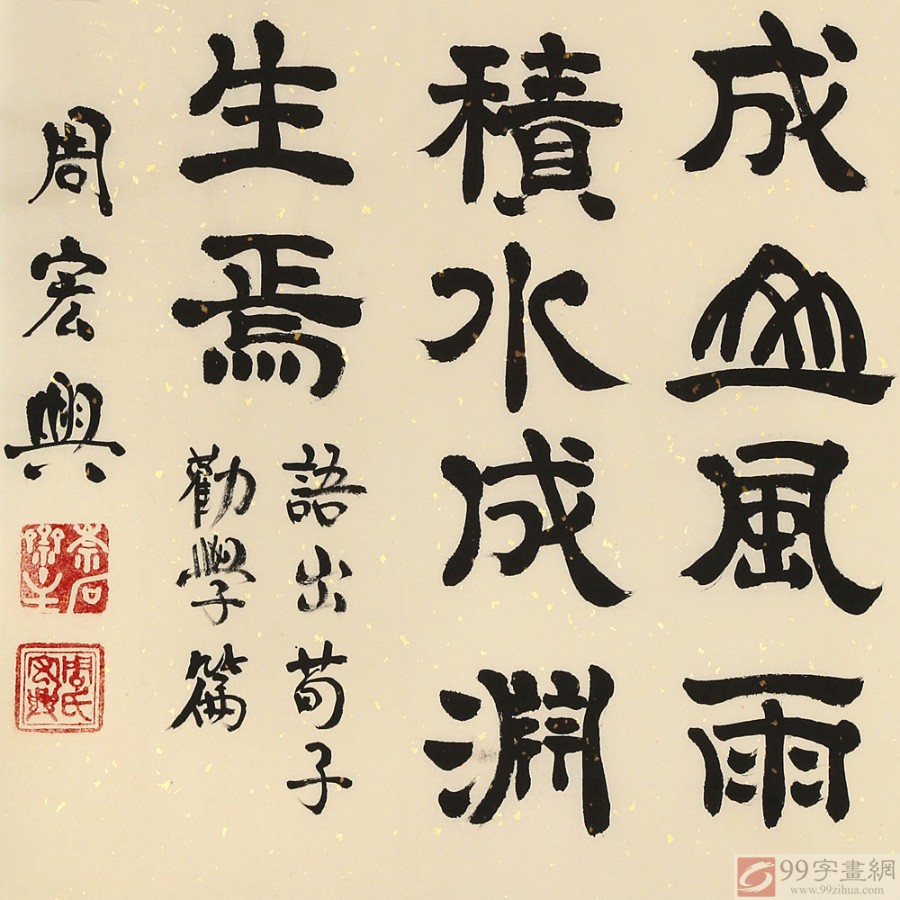 成山風雨
積水成淵
生焉
語出荀子
勸學篇
周宏興
周氏宏興
99字畫網
www.99zihua.com